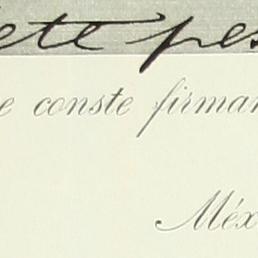 ete pes
e conste firmar
Méx